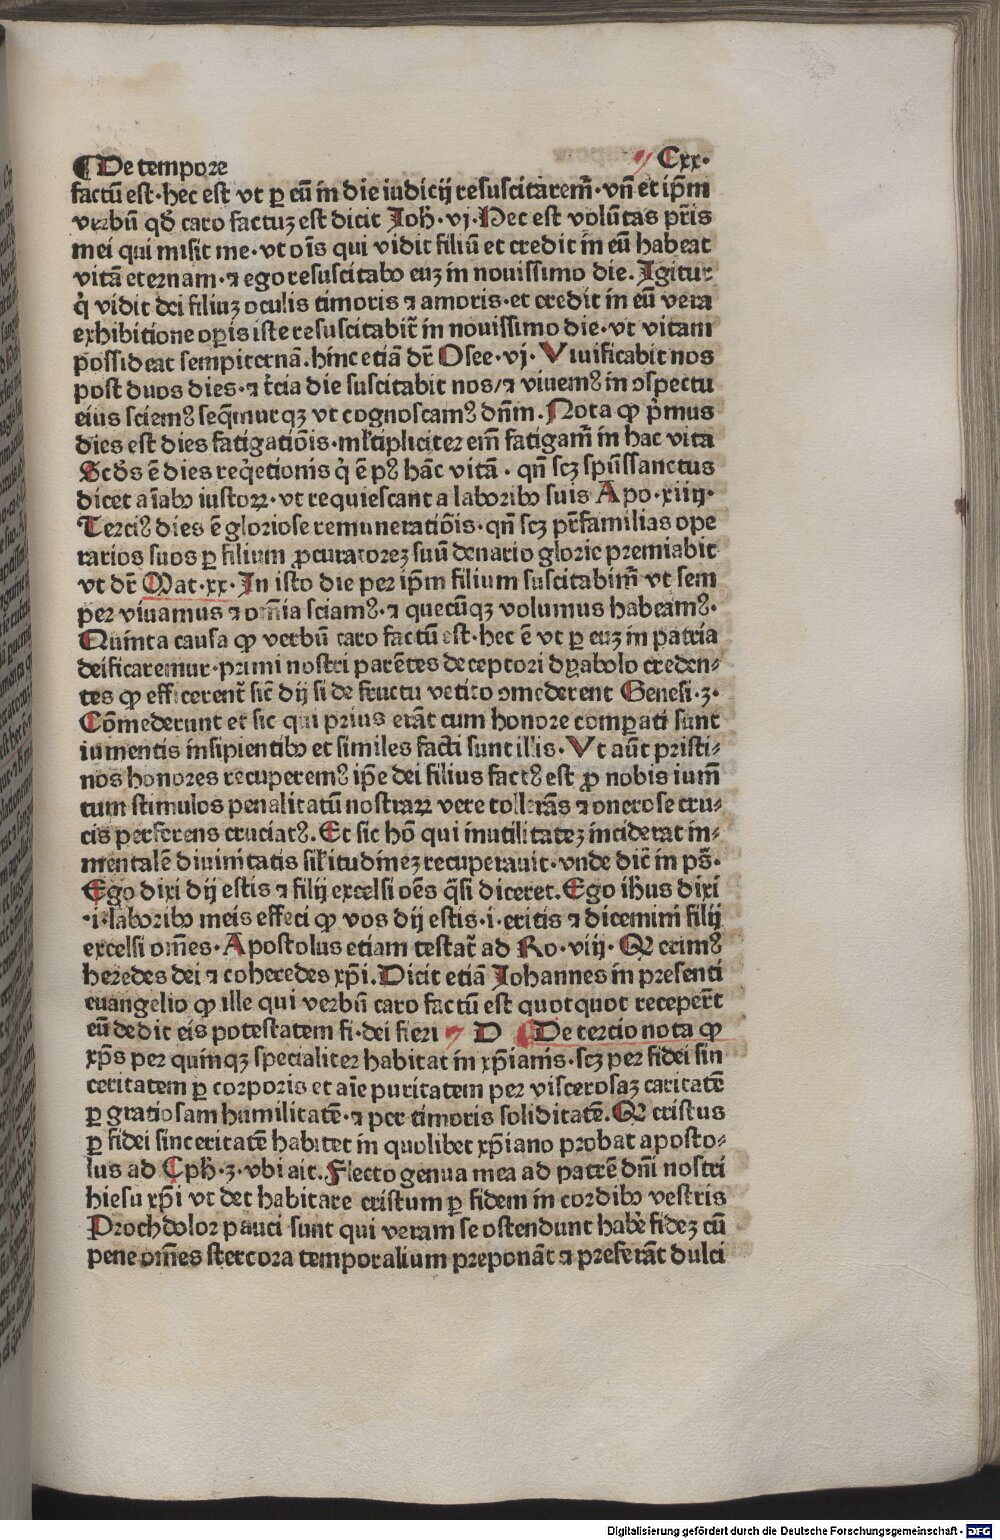 ¶ De tempore Cxx·
factū est· hec est vt ꝑ eū in die iudicij resuscitarem̄· vn̄ et ip̄m
verbū qd̄ caro factuꝫ est dicit Joh̄· vj· Hec est volūtas pr̄is
mei qui misit me· vt oīs qui vidit filiū et credit in eū habeat
vitā eternam· ⁊ ego resuscitabo euꝫ in nouissimo die. Igitur
q̇ vidit dei filiuꝫ oculis timoris ⁊ amoris· et credit in eū vera
exhibitione oꝑis iste resuscitabit̄ in nouissimo die· vt vitam
possideat sempiternā. hinc etiā dr̄ Osee· vj· Viuificabit nos
post duos dies· ⁊ t̄cia die suscitabit nos/ ⁊ viuemꝰ in ↄspectu
eius sciemꝰ seq̄murqꝫ vt cognoscamꝰ dn̄m. Nota ꝙ p̄mus
dies est dies fatigatiōis· ml̄tipliciter em̄ fatigam̄ in hac vita
Scd̄s ē dies req̇etionis q̇ ē pꝰ hāc vitā· qn̄ scꝫ spūssanctus
dicet aīabꝰ iustoꝝ· vt requiescant a laboribꝰ suis Apo· xiiij·
Terciꝰ dies ē gloriose remuneratiōis· qn̄ scꝫ pr̄familias ope
rarios suos ꝑ filium ꝓcuratoreꝫ suū denario glorie premiabit
vt dr̄ Mat· xx· In isto die per ip̄m filium suscitabim̄ vt sem
per viuamus ⁊ om̄ia sciamꝰ· ⁊ quecūqꝫ volumus habeamꝰ·
Quinta causa ꝙ verbū caro factū est· hec ē vt ꝑ euꝫ in patria
deificaremur· primi nostri parētes deceptori dyabolo creden⸗
tes ꝙ efficerent̄ sic̄ dij si de fructu vetito ↄmederent Genesi· 3·
Cōmederunt et sic qui prius erāt cum honore comꝑati sunt
iumentis insipientibꝰ et similes facti sunt illis· Vt aūt pristi⸗
nos honores recuperemꝰ ip̄e dei filius factꝰ est ꝓ nobis ium̄
tum stimulos penalitatū nostraꝝ vere tollerās ⁊ onerose cru⸗
cis perferens cruciatꝰ. Et sic hō qui inutilitateꝫ inciderat in⸗
mentalē diuinitatis sil̄itudineꝫ recuperauit· vnde dic̄ in ps̄·
Ego dixi dij estis ⁊ filij excelsi oēs q̄si diceret. Ego ih̄us dixi
·i· laboribꝰ meis effeci ꝙ vos dij estis· i· eritis ⁊ dicemini filij
excelsi om̄es· Apostolus etiam testat̄ ad Ro· viij· Q̨ erimꝰ
heredes dei ⁊ coheredes xp̄i. Dicit etiā Johannes in presenti
euangelio ꝙ ille qui verbū caro factū est quotquot receper̄t
eū dedit eis potestatem fi· dei fieri D De tercio nota ꝙ
xp̄s per quinqꝫ specialiter habitat in xp̄ianis· scꝫ per fidei sin
ceritatem ꝑ corporis et aīe puritatem per viscerosaꝫ caritatē
ꝑ gratiosam humilitatē· ⁊ per timoris soliditatē. Q̨ cristus
ꝑ fidei sinceritatē habitet in quolibet xp̄iano probat aposto⸗
lus ad Eph̄· 3· vbi ait. Flecto genua mea ad patrē dn̄i nostri
hiesu xp̄i vt det habitare cristum ꝑ fidem in cordibꝰ vestris
Prochdolor pauci sunt qui veram se ostendunt hab̄e fideꝫ cū
pene om̄es stercora temporalium preponāt ⁊ preferāt dulci
Digitalisierung gefördert durch die Deutsche Forschungsgemeinschaft - DFG